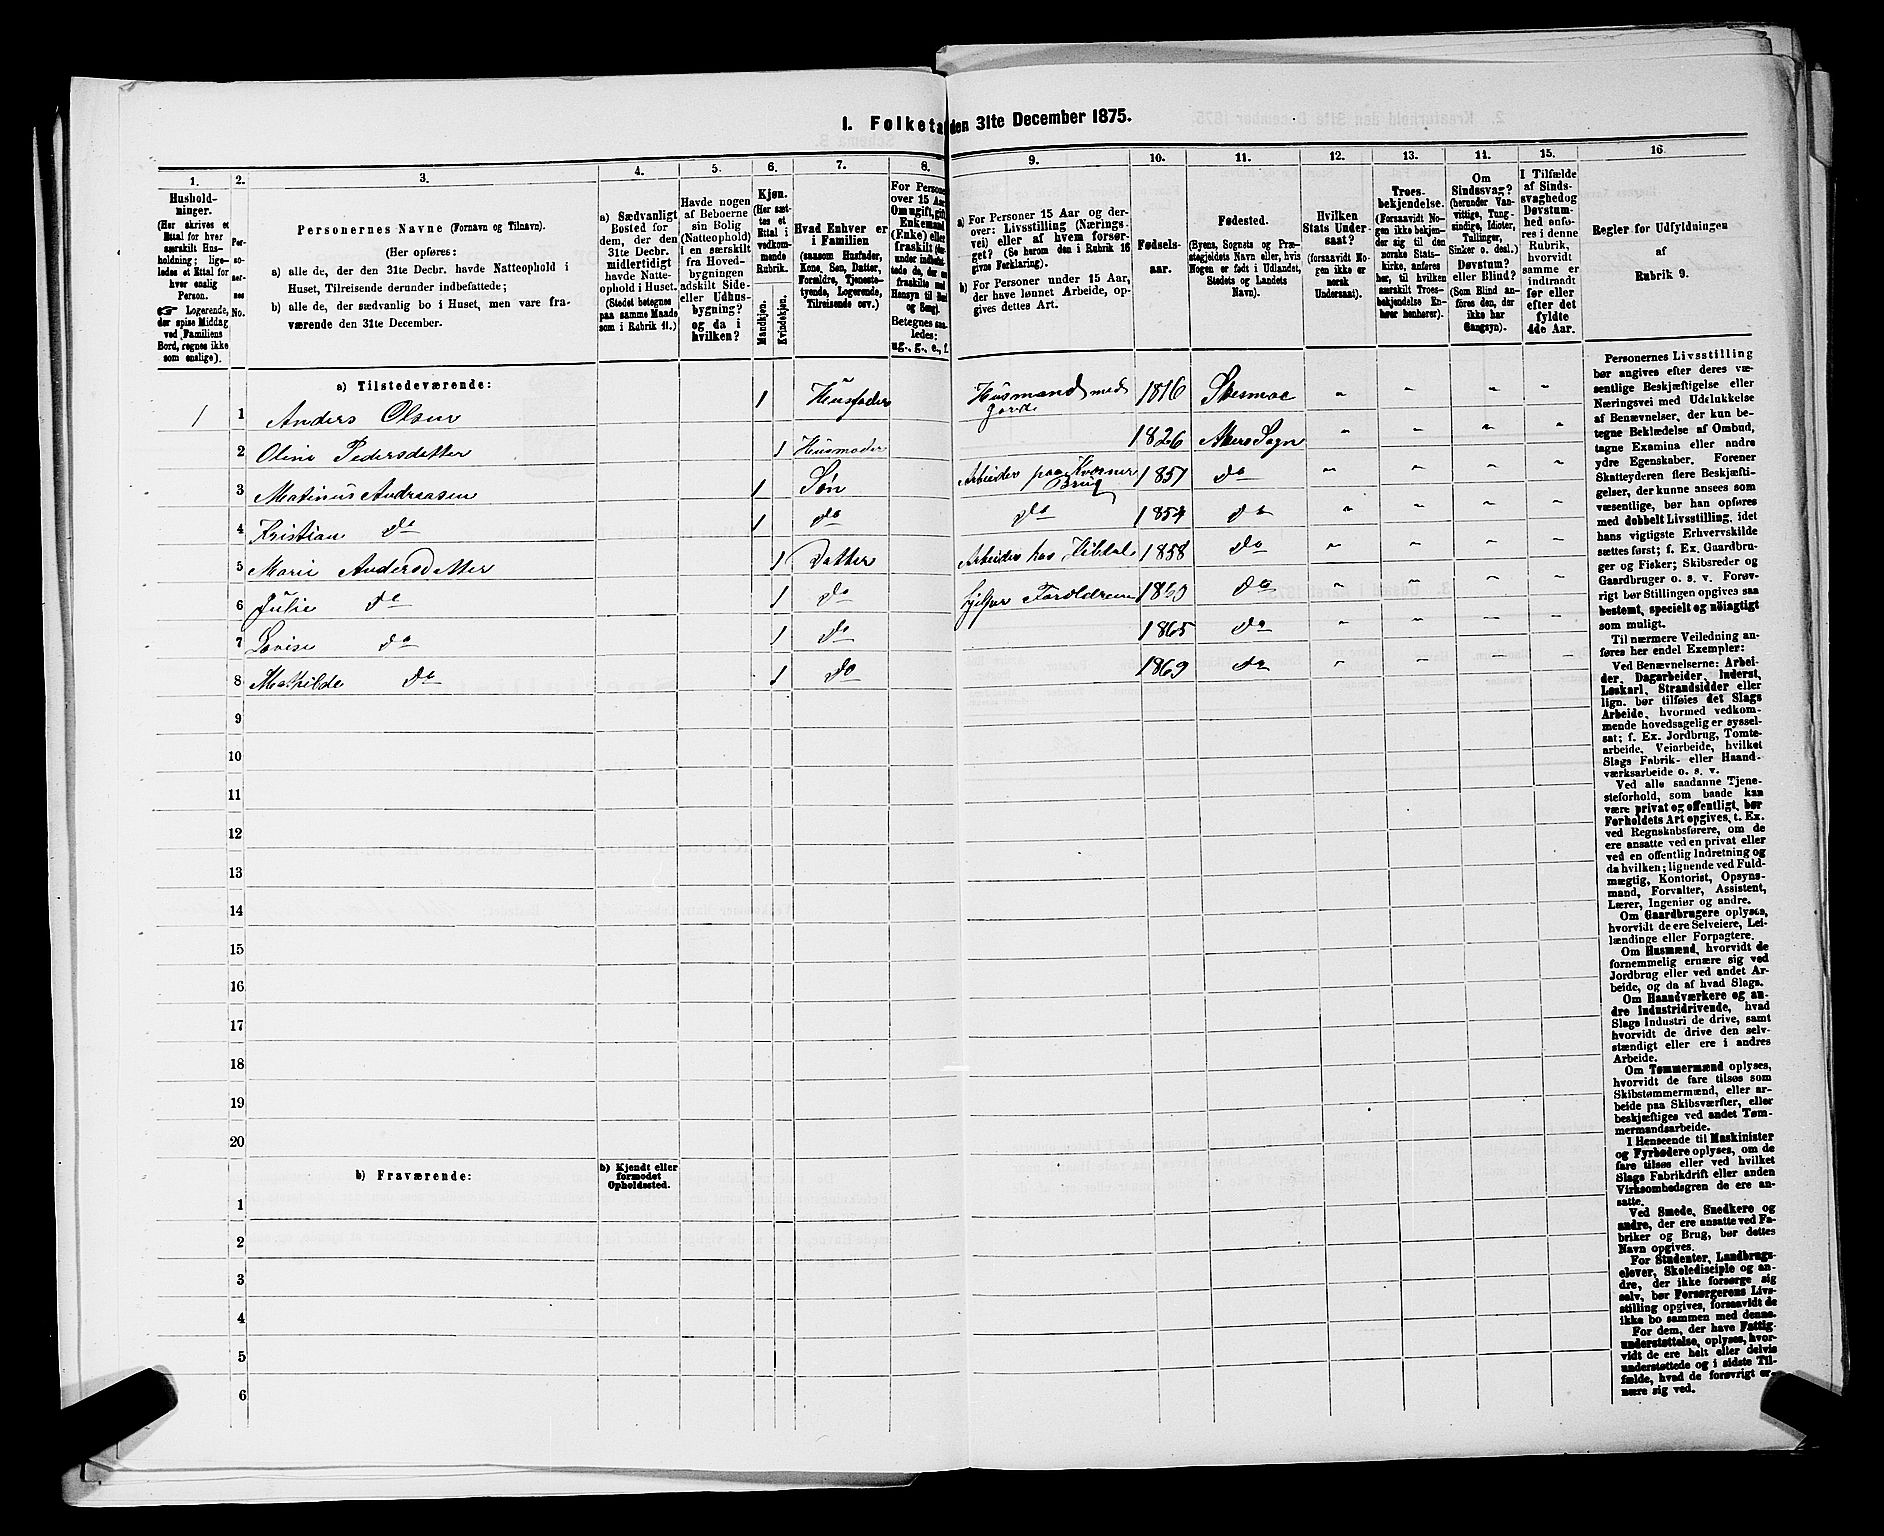 I. Folketa den 31te December 1875.
1. 2. 3. 4. 5. 6. 7. 8. 9. 10. 11. 12. 13. 14. 15. 16.
Hushold-
ninger.
(Her skrives et
Ettal for hver
særskilt Hus-
holdning; lige-
ledes et Ettal for
hver enslig
Person.
☞ Logerende,
der spise Middag
ved Familiens
Bord, regnes ikke
som enslige).
Per-
so-
ner-
nes
No.
Personernes Navne (Fornavn og Tilnavn).
(Her opføres:
a) alle de, der den 31te Decbr. havde Natteophold i
Huset, Tilreisende derunder indbefattede;
b) alle de, der sædvanlig bo i Huset, men vare fra-
værende den 31te December.
a) Sædvanligt
Bosted for
dem, der den
31te Decbr.
midlertidigt
havde Natte-
ophold i Huset.
(Stedet betegnes
paa samme Maade
som i Rubrik 11.)
Havde nogen
af Beboerne
sin Bolig
(Natteophold)
i en særskilt
fra Hoved-
bygningen
adskilt Side-
eller Udhus-
bygning?
og da i
hvilken?
Kjøn.
(Her sæt-
tes et
Ettal i
vedkom-
mende
Rubrik.
Mandkjøn.
Kvindekjøn.
Hvad Enhver er
i Familien
(saasom Husfader,
Kone, Søn, Datter,
Forældre, Tjeneste-
tyende, Logerende,
Tilreisende osv.)
For Persone
over 15 Aar
Om ugift, gift
Enkemand
(Enke) eller
fraskilt
Betegnes saa-
ledes:
ug., g., e., f.
a) For Personer 15 Aar og der-
over: Livsstilling (Nærings-
vei) eller af hvem forsør-
get? (Se herom den i Rubrik 16
givne Forklaring).
b) For Personer under 15 Aar,
der have lønnet Arbeide, op-
gives dettes Art.
Fødsels-
aar.
Fødested.
(Byens, Sognets og Præ-
stegjeldets Navn eller, hvis
Nogen er født i Udlandet,
Stedets og Landets
Navn).
Hvilken
Stats Under-
saat?
(forsaavidt No-
gen ikke er
norsk
Undersaat).
Troes-
bekjendelse.
(Forsaavidt No-
gen ikke bekjen-
der sig til den
norske Stats-
kirke, anføres
her, til hvilken
særskilt Troes-
bekjendelse En-
hver henhører).
Om
Sindssvag?
(herunder Van-
vittige, Tung-
sindige, Idioter,
Tullinger,
Sinker o. desl.)
Døvstum?
eller Blind?
(Som Blind an-
føres den, der
ikke har
Gangsyn).
I Tilfælde
af Sinds-
svaghed og
Døvstum-
hed anfø-
res i denne
Rubrik,
hvorvidt
samme er
indtraadt
før eller
efter det
fyldte
4de Aar.
Regler for Udfyldningen
af
Rubrik 9.
a) Tilstedeværende:
1 1 Anders Olsen 1 Husfader Husmand med Jord 1816 Skesmoe " " " "
2 Oline Pedersdatter 1 Husmoder 1826 Akers Sogn " " " "
3 Martinus Andreasen 1 Søn Arbeider paa Kværner Brug 1851 Do " " " "
4 Kristian Do 1 Do Do 1854 Do " " " "
5 Marie Andersdatter 1 Datter Arbeider hos 1858 Do " " " "
6 Julie Do 1 Do hjelper Foreldrene Do " " " "
7 Lovise Do 1 Do 1865 Do " " " "
8 Mathilde Do 1 Do 1869 Do " " " "
9
10
11
12
13
14
15
16
17
18
19
20
b) Fraværende:
b) Kjendt eller
formodet
Opholdssted.
1
2
3
4
5
6
Personernes Livsstilling
bør angives efter deres væ-
sentlige Beskjæftigelse eller
Næringsvei med Udelukkelse
af Benævnelser, der kun be-
tegne Beklædelse af Ombud,
tagne Examina eller andre
ydre Egenskaber. Forener
Skatteyderen flere Beskjæfti-
gelser, der kunne ansees som
væsentlige, bør han opføres
med dobbelt Livsstilling, idet
hans vigtigste Erhvervskilde
sættes først; f. Ex. Gaardbru-
ger og Fisker; Skibsreder og
Gaardbruger o. s. v. Forøv-
rigt bør Stillingen opgives saa
bestemt, specielt og nöiagtigt
som muligt.
Til nærmere Veiledning an-
føres her endel Exempler:
Ved Benævnelserne: Arbei-
der, Dagarbeider, Inderst,
Løskarl, Strandsidder eller
lign. bør tilføies det Slags
Arbeide, hvormed vedkom-
mende hovedsagelig er syssel-
sat; f. Ex. Jordbrug, Tomte-
arbeide, Veiarbeide, hvilket
Slags Fabrik- eller Haand-
værksarbeide o. s. v.
Ved alle saadanne Tjene-
steforhold, som baade kan
være privat og offentligt, bør
Forholdets Art opgives, t. Ex.
ved Regnskabsførere, om de
ere ansatte ved en privat eller
ved en offentlig Indretning og
da hvilken; lignende ved Fuld-
mægtig, Kontorist, Opsyns-
mand, Forvalter, Assistent,
Lærer, Ingeniør og andre.
Om Gaardbrugere oplyses,
hvorvidt de ere Selveiere, Lei-
lændinge eller Forpagtere.
Om Husmænd, hvorvidt de
fornemmelig ernære sig ved
Jordbrug eller ved andet Ar-
beide, og da af hvad Slags.
Om Haandværkere og an-
dre industridrivende, hvad
Slags Industri de drive, samt
hvorvidt de drive den selv-
stændigt eller ere i andres
Arbeide.
Om Tømmermænd oplyses,
hvorvidt de fare tilsøs som
Skibstømmermænd, eller ar-
beide paa Skibsværfter, eller
beskjæftiges ved andet Tøm-
mermandsarbeide.
I Henseende til Maskinister
og Fyrbødere oplyses, om de
fare tilsøs eller ved hvilket
Slags Fabrikdrift eller anden
Virksomhedsgren de ere an-
satte.
Ved Smede, Snedkere og
andre, der ere ansatte ved Fa-
briker og Brug, bør dettes
Navn opgives.
For Studenter, Landbrugs-
elever, Skoledisciple og an-
dre, der ikke forsørge sig
selv, bør Forsørgerens Livs-
stilling opgives, forsaavidt de
ikke bo sammen med denne.
For dem, der have Fattig-
understøttelse, oplyses, hvor-
vidt de ere helt eller delvis
understøttede og i sidste Til-
fælde, hvad de forøvrigt er-
nære sig ved.